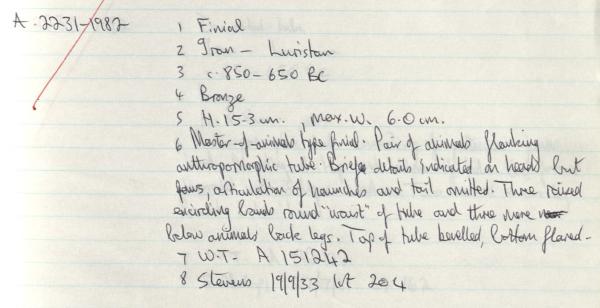 A.2231-1982 1 Finial
2 Iran - Luristan
3 c.850-650 BC
4 Bronze
5 H. 15.3 cm., max.W. 6.0 cm.
6 Master-of-animals type finial. Pair of animals flanking
anthropomorphic tube. Brief details indicated on heads but
paws, articulation of haunches and tail omitted. Three raised
encircling bands round "waist" of tube and three more
below animals back legs. Top of tube bevelled, bottom flared.
7 W.T. A 151242
8 Stevens 19/9/33 lot 204